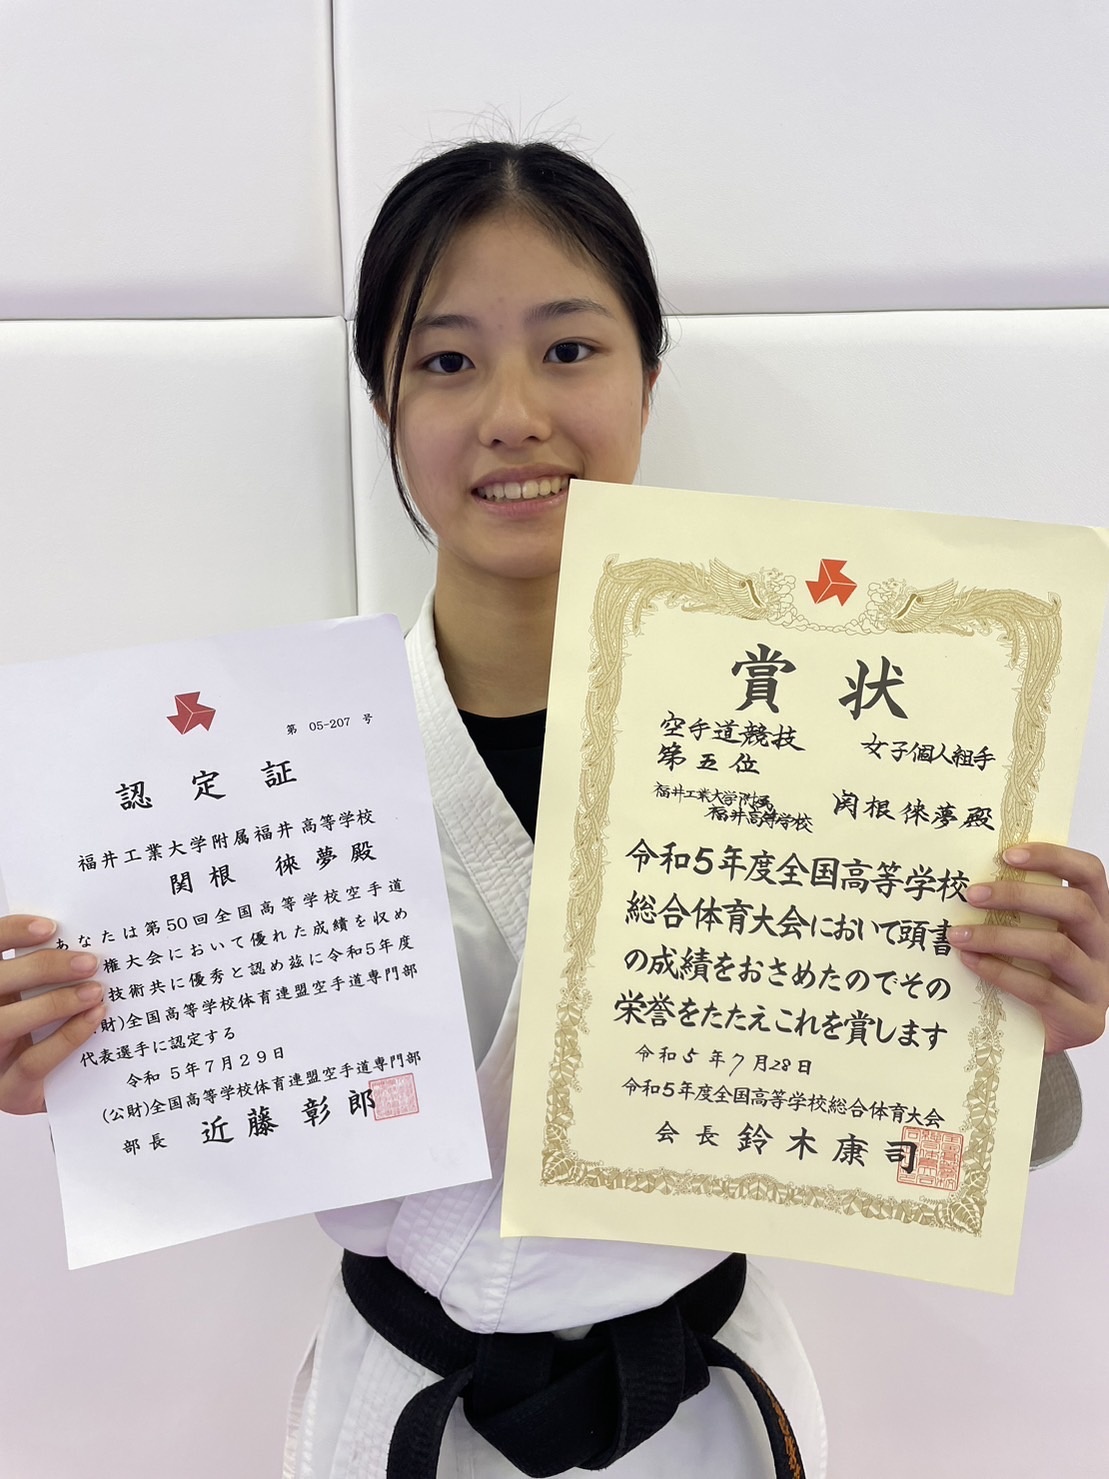 第 05-207 号
認定証
福井工業大学附属福井高等学校
関根 徠夢殿
あなたは第50回全国高等学校空手道
権大会において優れた成績を収め
技術共に優秀と認め茲に令和5年度
財)全国高等学校体育連盟空手道専門部
代表選手に認定する
令和 5年7月29日
(公財)全国高等学校体育連盟空手道専門部
部長 近藤彰郎
賞状
空手道競技 女子個人組手
第五位
福井工業大学附属
福井高等学校 関根徠夢殿
令和5年度全国高等学校
総合体育大会において頭書
の成績をおさめたのでその
栄誉をたたえこれを賞します
令和5年7月28日
令和5年度全国高等学校総合体育大会
会長 鈴木康司